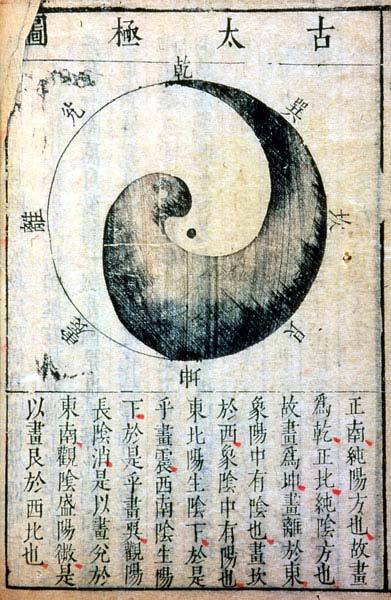 古太極圖
乾
兌
巽
離
坎
震
艮
坤
正南純陽方也故畫
為乾正比純陰方也
故畫為坤畫離於東
象陽中有陰也畫坎
於西象陰中有陽也
東比陽生陰下於是
乎畫震西南陰生陽
下於是乎畫巽觀陽
長陰消是以畫兌於
東南觀陰盛陽微是
以畫艮於西比也